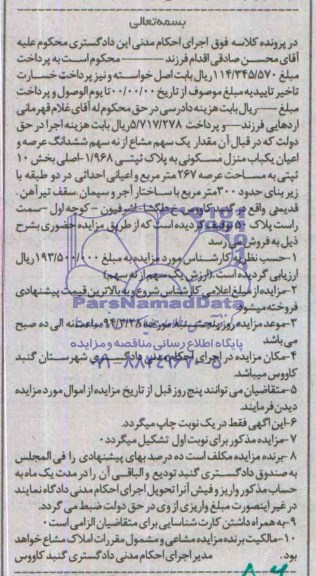 بسمه‌تعالی
در پرونده کلاسه فوق اجرای احکام مدنی این دادگستری محکوم علیه
آقای محسن صادقی اقدام فرزند ——— محکوم است به پرداخت
مبلغ ۱۱۴/۳۴۵/۵۷۰ ریال بابت اصل خواسته و نیز پرداخت خسارت
تاخیر تادییه مبلغ موصوف از تاریخ ۰۰/۰۰/۰۰ تا یوم الوصول و پرداخت
مبلغ —— ریال بابت هزینه دادرسی در حق محکوم له آقای غلام قهرمانی
اردهایی فرزند — و پرداخت ۵/۷۱۷/۲۷۸ ریال بابت هزینه اجرا در حق
دولت که در قبال آن مقدار یک سهم مشاع از نه سهم ششدانگ عرصه و
اعیان یکباب منزل مسکونی به پلاک ثبتی ۱/۹۶۸- اصلی بخش ۱۰
ثبتی به مساحت عرصه ۲۶۷ متر مربع و اعیانی احداثی در دو طبقه با
زیر بنای حدود ۳۰۰ متر مربع با ساختار آجر و سیمان .سقف تیر آهن .
قدیمی واقع در گنبد کاووس خ دلگشا - اشرفیون – کوچه اول – سمت
راست پلاک ۵۰ توقیف گردیده است که از طریق مزایده حضوری بشرح
ذیل به فروش می رسد
۱-حسب نظریه کارشناس مورد مزایده به مبلغ ۱۹۳/۵۰۰/۰۰۰ ریال
ارزیابی گردیده است (ارزش یک سهم از نه سهم)
۲-مزایده از مبلغ اعلامی کارشناس شروع و به بالاترین قیمت پیشنهادی
فروخته میشود
۳-موعد مزایده روز پنجشنبه مورخه ۹۴/۳/۲۸ ساعت نه الی ده صبح
می باشد
۴-مکان مزایده در اجرای احکام مدنی دادگستری شهرستان گنبد
کاووس میباشد.
۵-متقاضیان می توانند پنج روز قبل از تاریخ مزایده از اموال مورد مزایده
دیدن فرمایند.
۶-این آگهی فقط در یک نوبت چاپ میگردد.
۷-مزایده مذکور برای نوبت اول تشکیل میگردد۰
۸-برنده مزایده مکلف است ده درصد بهای پیشنهادی را فی المجلس
به صندوق دادگستری گنبد تودیع و الباقی آن را در مدت یک ماه به
حساب مذکور واریز و فیش آنرا تحویل اجرای احکام مدنی دادگاه نمایند
در غیر اینصورت مبلغ واریزی از وی در حق دولت ضبط می گردد.
۹-به همراه داشتن کارت شناسایی برای متقاضیان الزامی است۰
۱۰-مالکیت برنده مزایده مشاعی و مشمول مقررات املاک مشاع خواهد
بود. مدیر اجرای احکام مدنی دادگستری گنبد کاووس
ParsNamadData
پایگاه اطلاع رسانی مناقصه و مزایده
۰۲۱-۸۸۳۴۹۶۷۰-۵